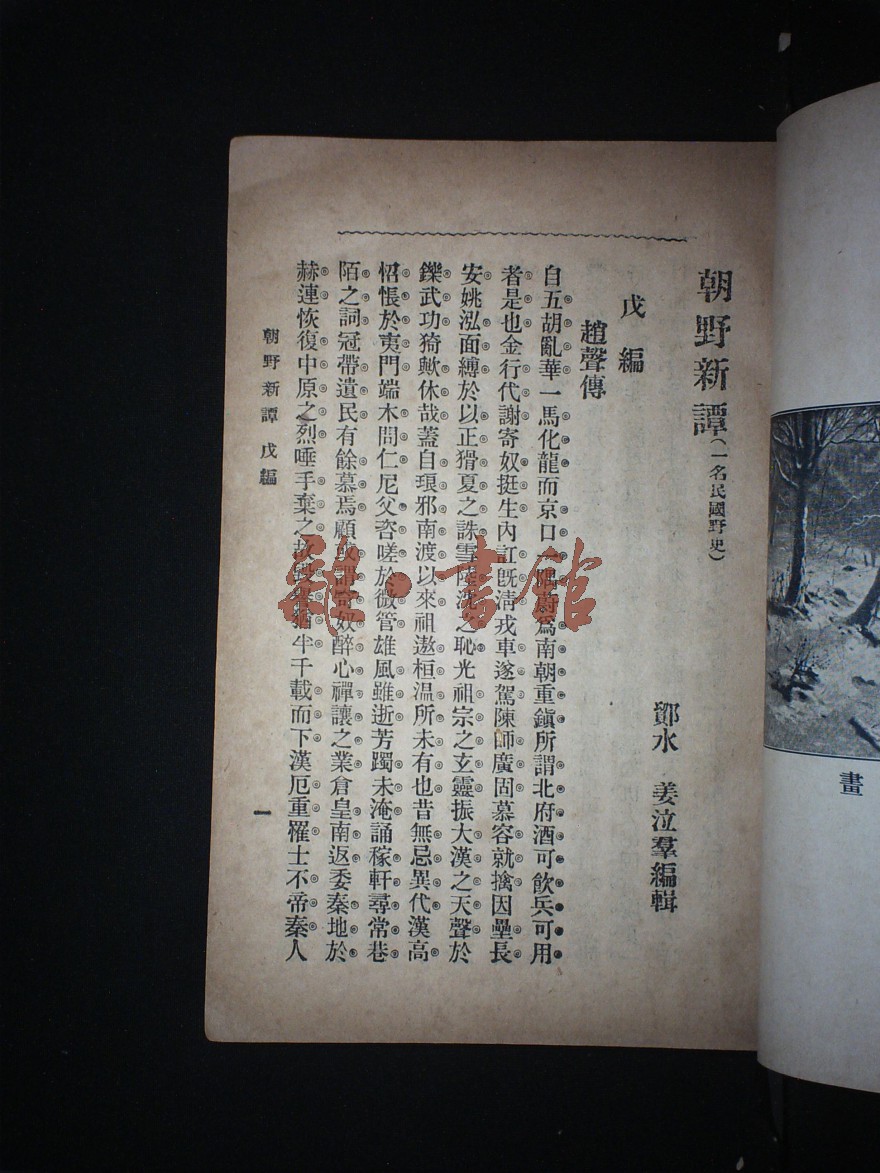 朝野新譚(一名民國野史)
鄞水 姜泣羣編輯
戊編
趙聲傳
自五胡亂華一馬化龍而京口一隅蔚爲南朝重鎭所謂北府酒可飮兵可用
者是也金行代謝寄奴挺生內訌旣淸戎車遂駕陳師廣固慕容就擒因壘長
安姚泓面縛於以正猾夏之誅雪陸沈之恥光祖宗之玄靈振大漢之天聲於
鑠武功猗歟休哉蓋自琅邪南渡以來祖逖桓温所未有也昔無忌異代漢高
怊悵於夷門端木問仁尼父咨嗟於微管雄風雖逝芳躅未淹誦稼軒尋常巷
陌之詞冠帶遺民有餘慕焉顧 寄奴醉心禪讓之業倉皇南返委秦地於
赫連恢復中原之烈唾手棄之故 猶半千載而下漢厄重罹士不帝秦人
朝野新譚 戊編
一
畫
雜·書館